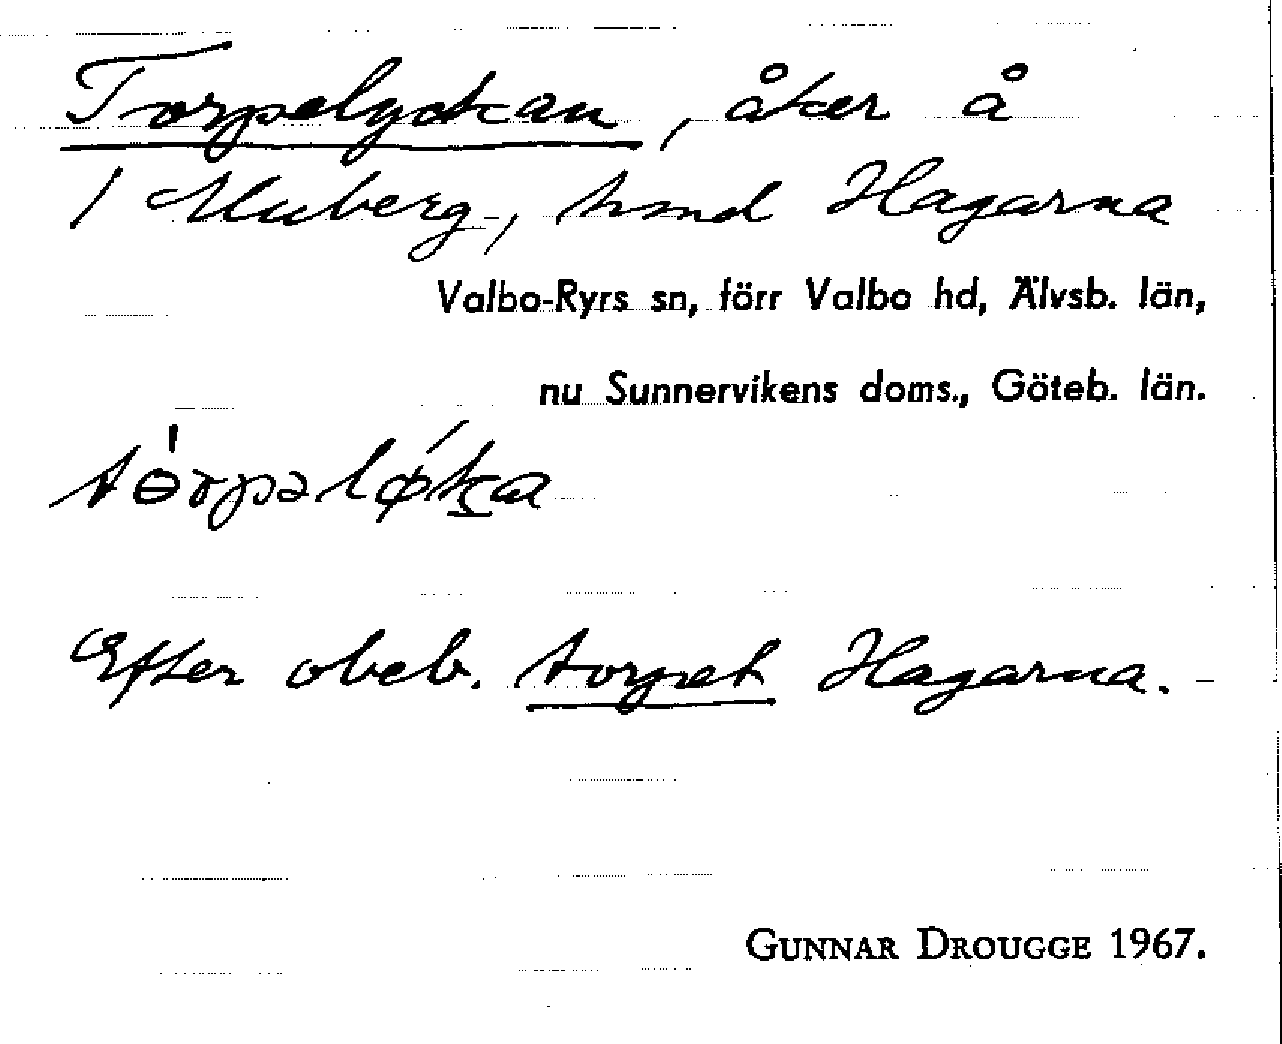 Torpelyckan, åker å
1 Muberg, hmd Hagarna
Valbo-Ryrs sn, förr Valbo hd, Älvsb. län,
nu Sunnervikens doms., Göteb. län.
Efter obeb. torpet Hagarna.
GUNNAR DROUGGE 1967.